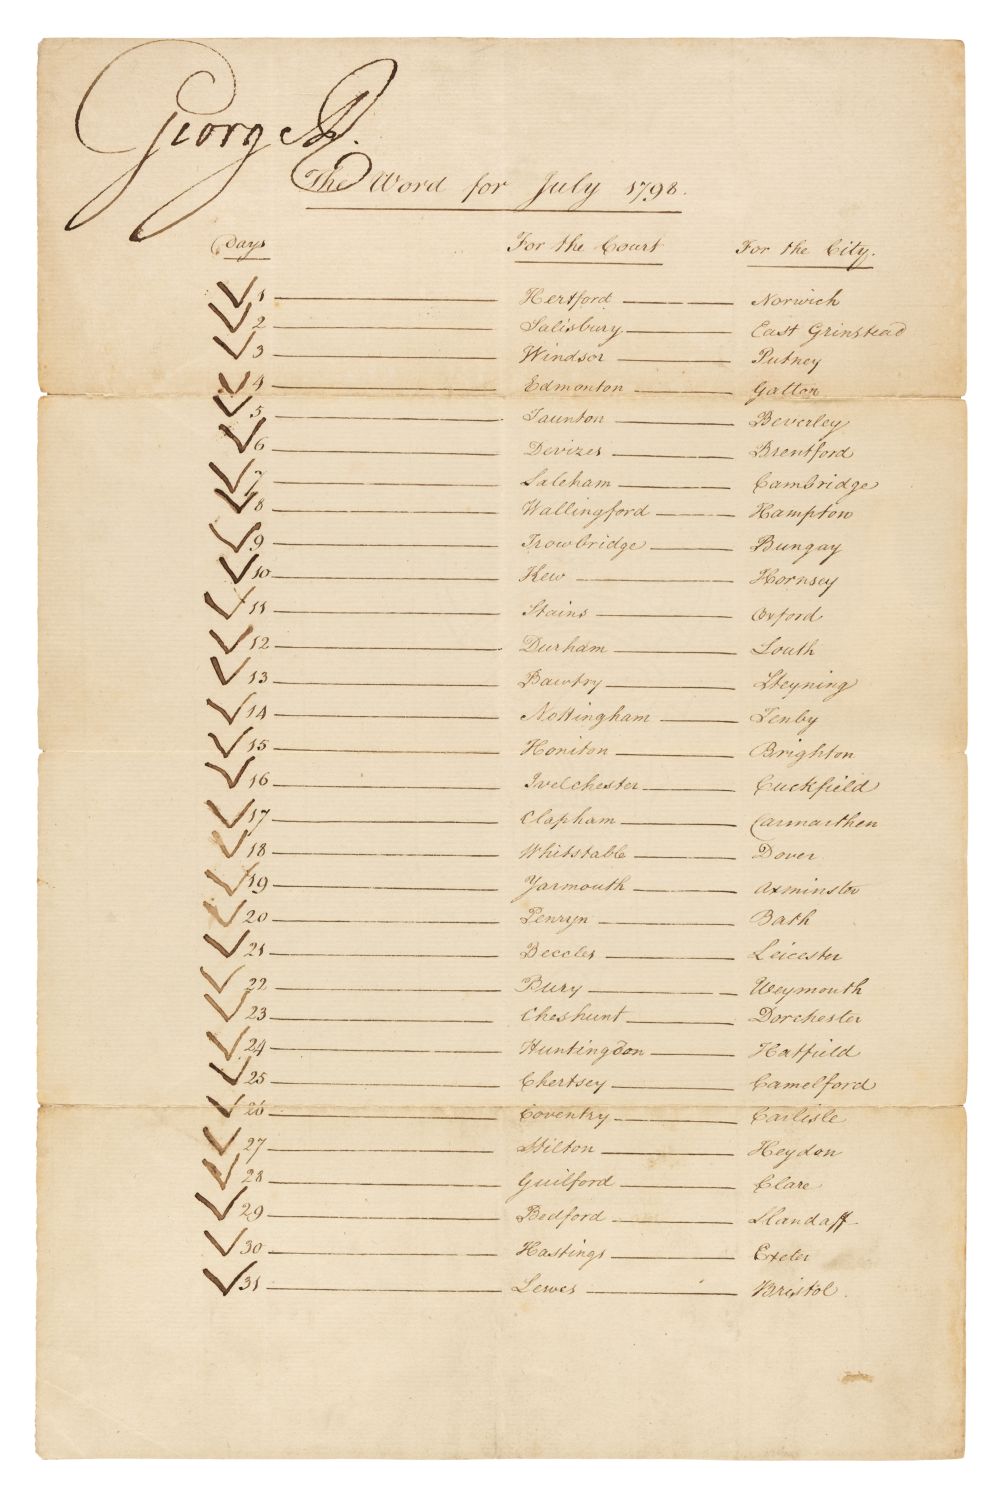 George R.
The Word for July 1798.
Days For the Court For the City.
1 Hertford Norwich
2 Salisbury East Grinstead
3 Windsor Putney
4 Edmonton Gatton
5 Taunton Beverley
6 Devizes Brentford
7 Saleham Cambridge
8 Wallingford Hampton
9 Trowbridge Bungay
10 Kew Hornsey
11 Stains Oxford
12 Durham Louth
13 Bawtry Steyning
14 Nottingham Tenby
15 Honiton Brighton
16 Ivelchester Cuckfield
17 Clapham Carmarthen
18 Whitstable Dover
19 Yarmouth Axminster
20 Penryn Bath
21 Beccles Leicester
22 Bury Weymouth
23 Cheshunt Dorchester
24 Huntingdon Hatfield
25 Chertsey Camelford
26 Coventry Carlisle
27 Stilton Heydon
28 Guilford Clare
29 Bedford Llandaff
30 Hastings Exeter
31 Lewes Bristol.